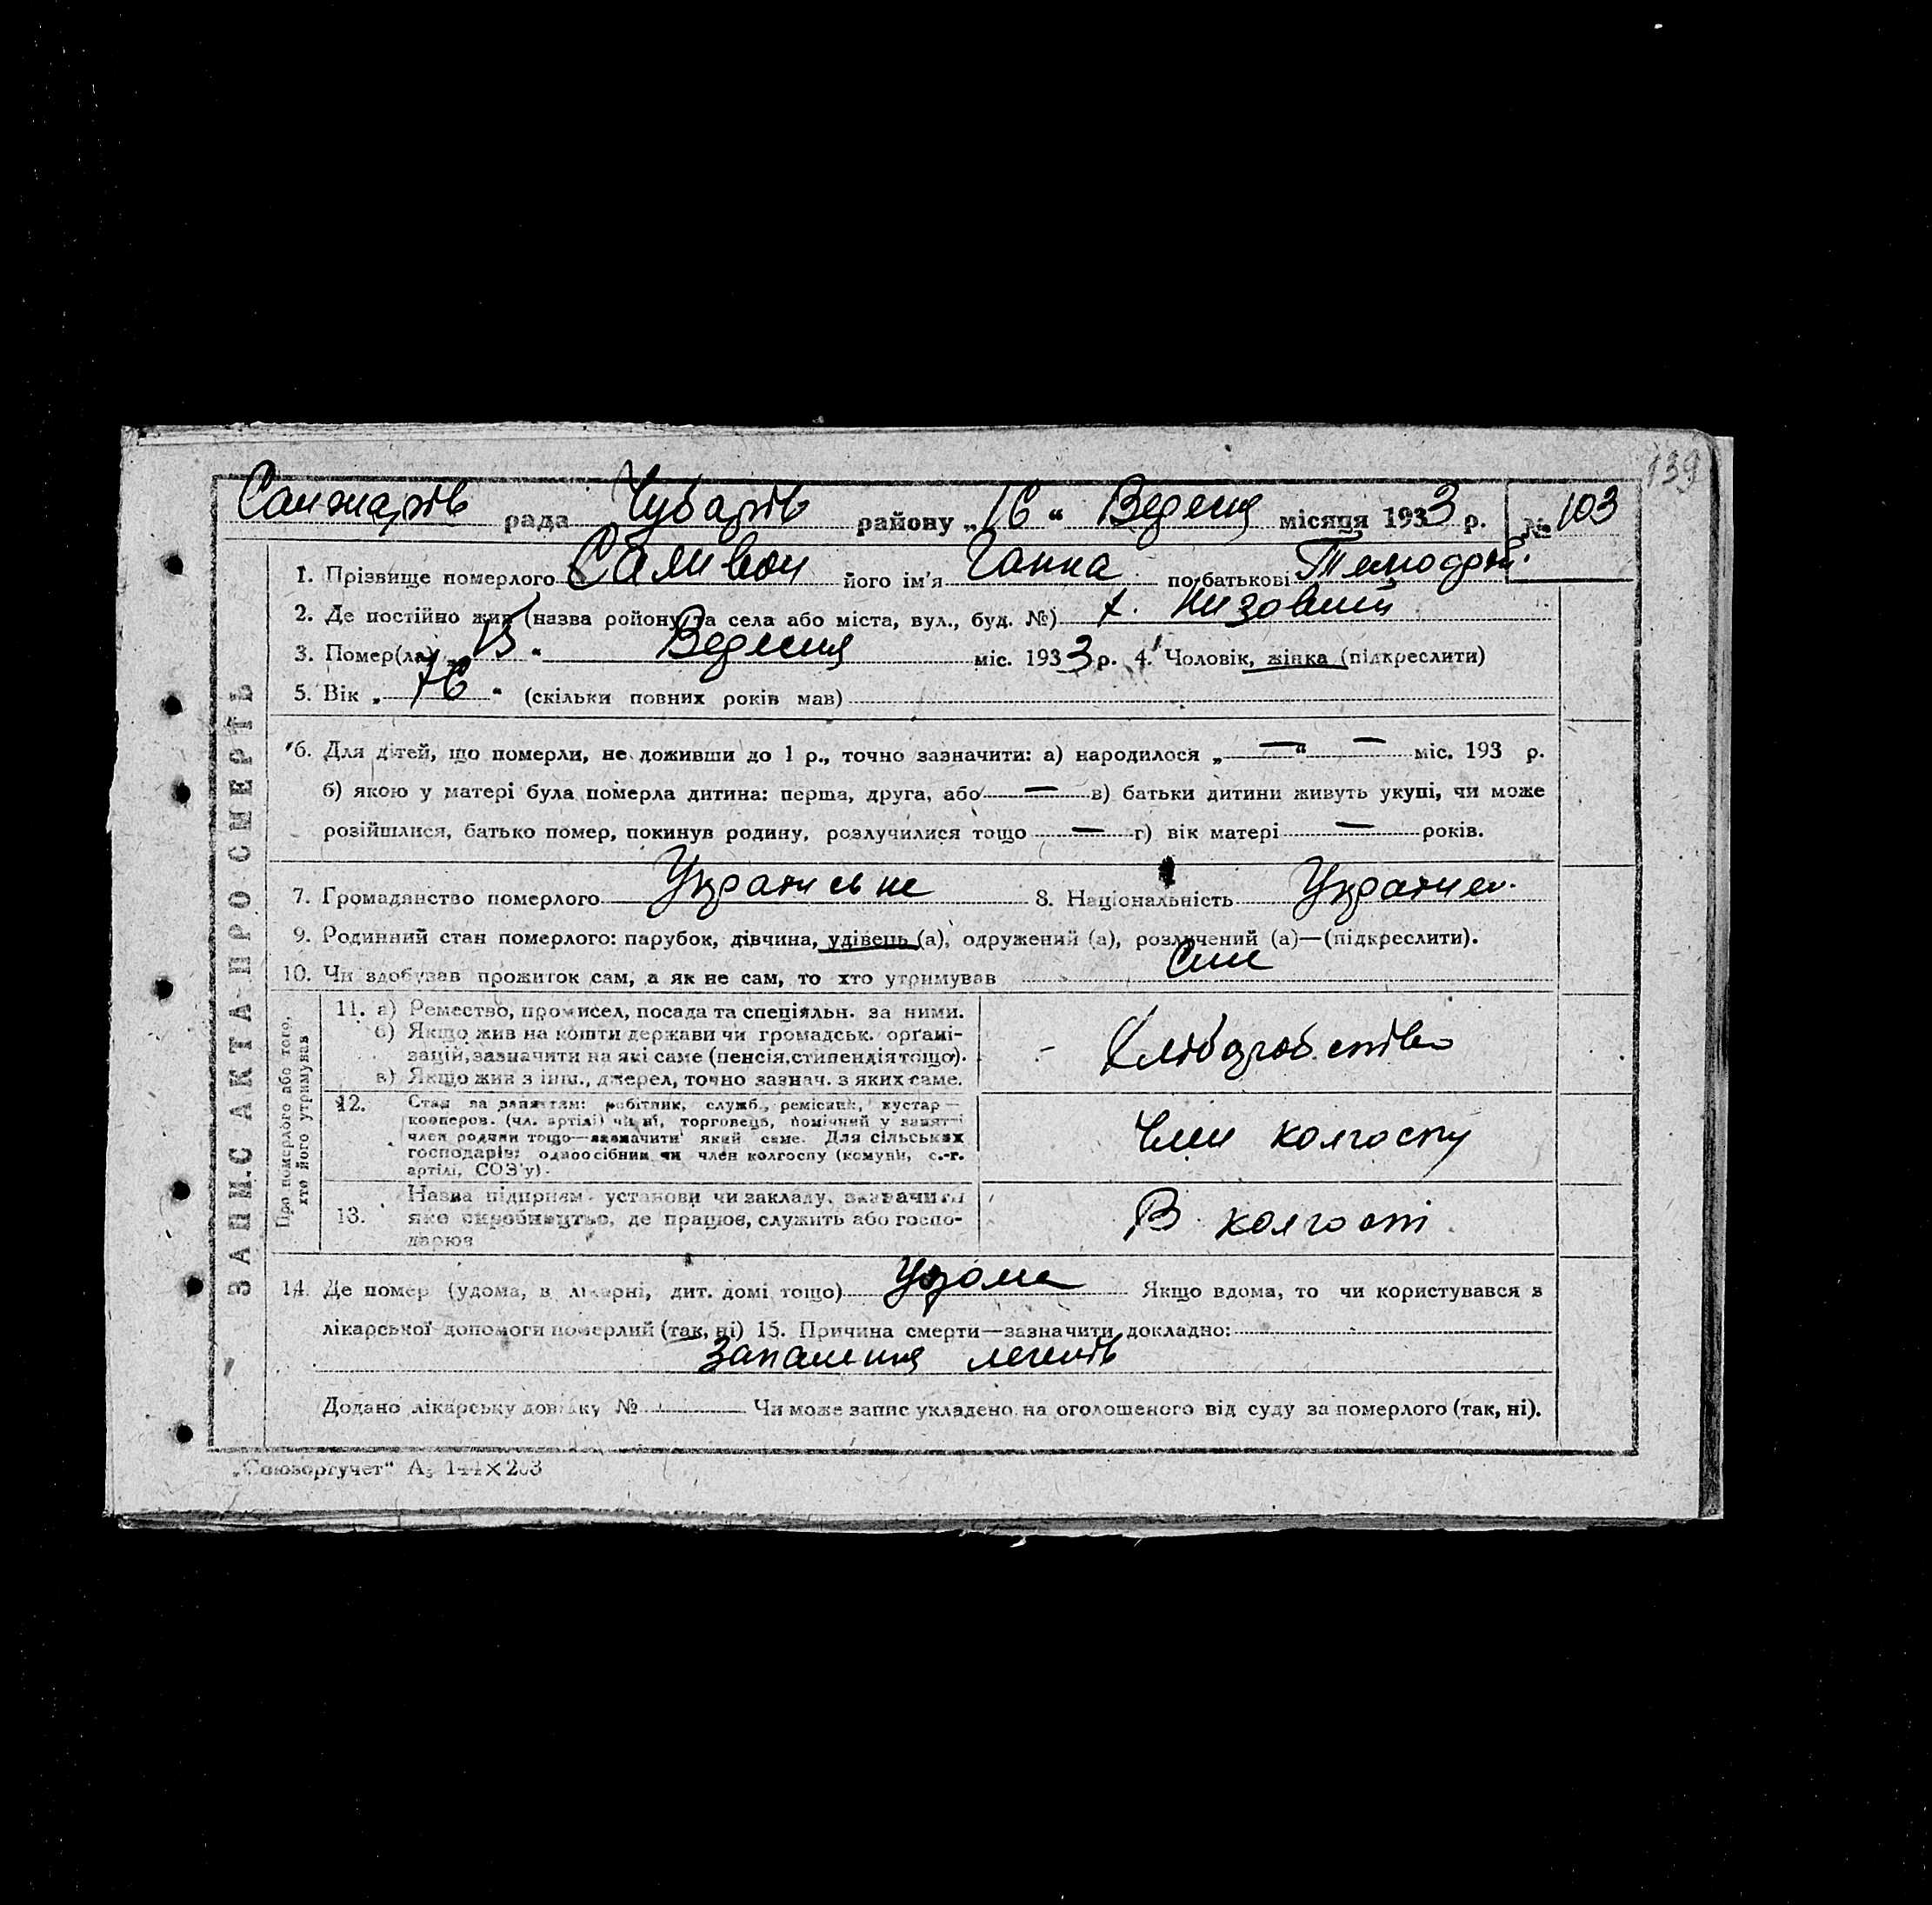 139
Санжарів рада Чубарів району „16“ Вересня місяця 1933 р. № 103
1. Прізвище померлого Саливон його ім'я Ганна по батькові
2. Де постійно жив (назва району та села або міста, вул., буд. №) х. Низовий
3. Помер(ла) „ “ Вересня міс. 1933 р. 4. Чоловік, жінка (підкреслити)
5. Вік „76“ (скільки повних років мав)
6. Для дітей, що померли, не доживши до 1 р., точно зазначити: а) народилося „—“ — міс. 193 р.
б) якою у матері була померла дитина: перша, друга, або — в) батьки дитини живуть укупі, чи може
розійшлися, батько помер, покинув родину, розлучилися тощо — г) вік матері — років.
7. Громадянство померлого Українське 8. Національність Україн.
9. Родинний стан померлого: парубок, дівчина, удівець (а), одружений (а), розлучений (а)—(підкреслити).
10. Чи здобував прожиток сам, а як не сам, то хто утримував Син
ЗАПИС АКТА ПРО СМЕРТЬ
Про померлого або того, хто його утримував
11. а) Ремество, промисел, посада та спеціяльн. за ними.
б) Якщо жив на кошти держави чи громадськ. органі-
зацій, зазначити на які саме (пенсія, стипендія тощо).
в) Якщо жив з інш., джерел, точно зазнач. з яких саме.
— Хліборобство
12. Стан за заняттям: робітник, служб., ремісник, кустар—
кооперов. (чл. артілі) чи ні, торговець, помічний у занятті
член родини тощо—зазначити який саме. Для сільських
господарів: одноосібник чи член колгоспу (комуни, с.-г.
артілі, СОЗ'у).
Член колгоспу
13. Назва підприєм. установи чи закладу, зазначити
яке виробництво, де працює, служить або госпо-
дарює
В колгоспі
14. Де помер (удома, в лікарні, дит. домі тощо) Удома Якщо вдома, то чи користувався з
лікарської допомоги померлий (так, ні) 15. Причина смерти—зазначити докладно:
Запалення легенів
Додано лікарську довідку № Чи може запис укладено на оголошеного від суду за померлого (так, ні).
„Союзоргучет“ А5 144×203